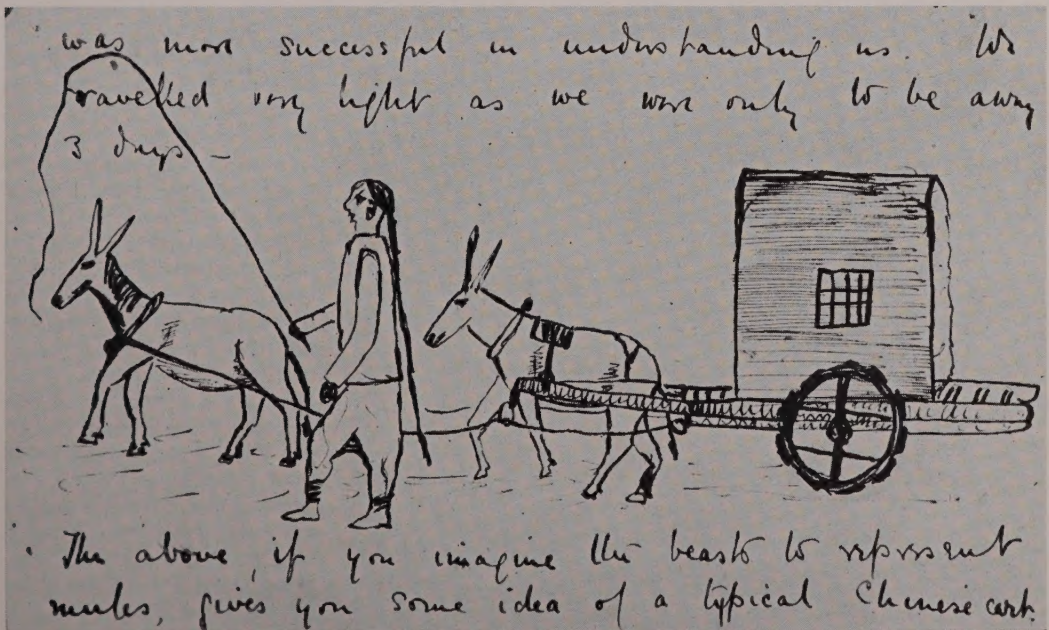 was more successful in understanding us. We
travelled very light as we were only to be away
3 days –
The above, if you imagine the beasts to represent
mules, gives you some idea of a typical Chinese cart.